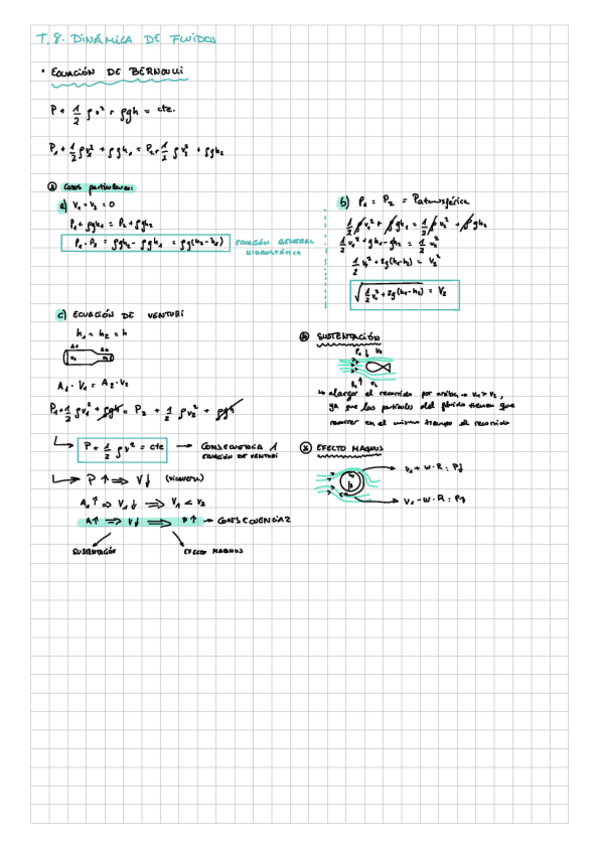 T.8. DINÁMICA DE FLUIDOS
• ECUACIÓN DE BERNOULLI
P + 1/2 ρv² + ρgh = cte.
P₁ + 1/2 ρv₁² + ρgh₁ = P₂ + 1/2 ρv₂² + ρgh₂
Casos particulares:
a) V₁ = V₂ = 0
P₁ + ρgh₁ = P₂ + ρgh₂
P₁ - P₂ = ρgh₂ - ρgh₁ = ρg(h₂-h₁)
ECUACIÓN GENERAL
HIDROSTÁTICA
b) P₁ = P₂ = Patmosférica
1/2 ρv₁² + ρgh₁ = 1/2 ρv₂² + ρgh₂
1/2 v₁² + gh₁ - gh₂ = 1/2 v₂²
1/2 v₁² + 2g(h₁-h₂) = V₂²
√(1/2 v₁² + 2g(h₁-h₂)) = V₂
c) ECUACIÓN DE VENTURI
h₁ = h₂ = h
A₁ · V₁ = A₂ · V₂
P₁ + 1/2 ρv₁² + ρgh = P₂ + 1/2 ρv₂² + ρgh
P + 1/2 ρv² = cte → CONSECUENCIA 1
ECUACIÓN DE VENTURI
P ↑ ⇒ V↓ (viceversa)
A₁↑ ⇒ V₁↓ ⇒ V₁ < V₂
A↑ ⇒ V↓ ⇒ P↑ → CONSECUENCIA 2
SUSTENTACIÓN EFECTO MAGNUS
SUSTENTACIÓN
↳ alargar el recorrido por arriba, → V₁ > V₂,
ya que las partículas del fluido tienen que
recorrer en el mismo tiempo el recorrido
EFECTO MAGNUS
V₁ + W·R : P↓
V₁ - W·R : P↑